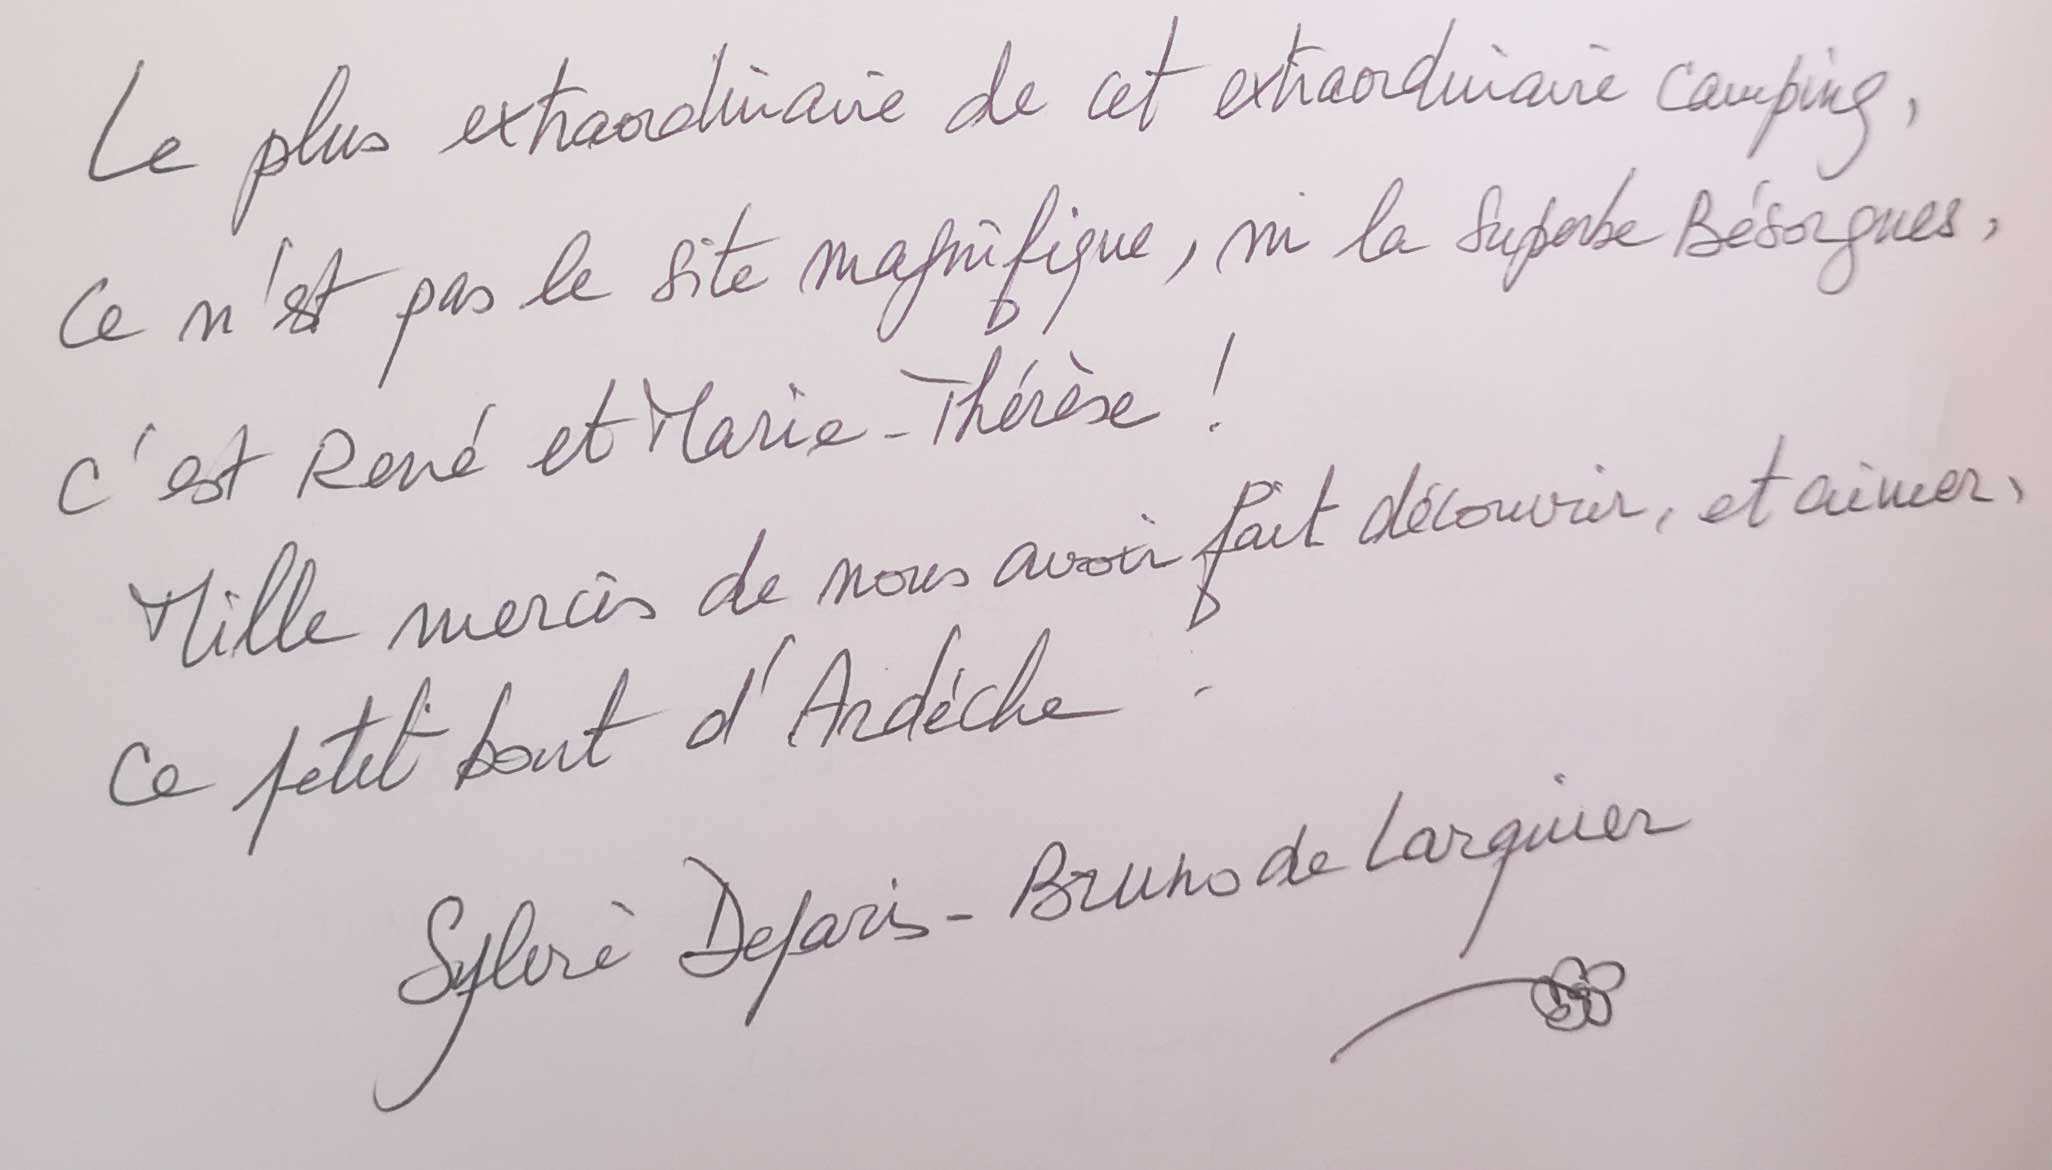 Le plus extraordinaire de cet extraordinaire camping,
ce n'est pas le site magnifique, ni la superbe Bésorgues,
c'est René et Marie-Thérèse !
Mille mercis de nous avoir fait découvrir, et aimer,
ce petit bout d'Ardèche.
Sylvie Deparis - Bruno de Larquier